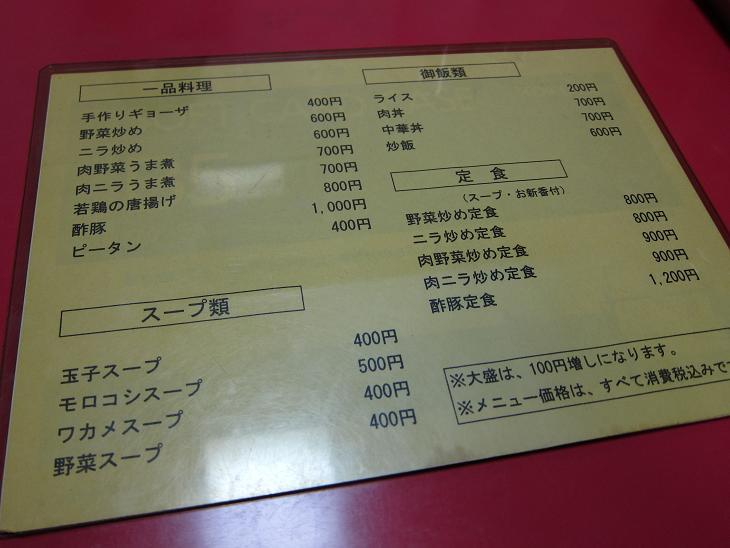 一品料理
手作りギョーザ 400円
野菜炒め 600円
ニラ炒め 600円
肉野菜うま煮 700円
肉ニラうま煮 700円
若鶏の唐揚げ 800円
酢豚 1,000円
ピータン 400円
スープ類
玉子スープ 400円
モロコシスープ 500円
ワカメスープ 400円
野菜スープ 400円
御飯類
ライス 200円
肉丼 700円
中華丼 700円
炒飯 600円
定 食
(スープ・お新香付)
野菜炒め定食 800円
ニラ炒め定食 800円
肉野菜炒め定食 900円
肉ニラ炒め定食 900円
酢豚定食 1,200円
※大盛は、100円増しになります。
※メニュー価格は、すべて消費税込みで